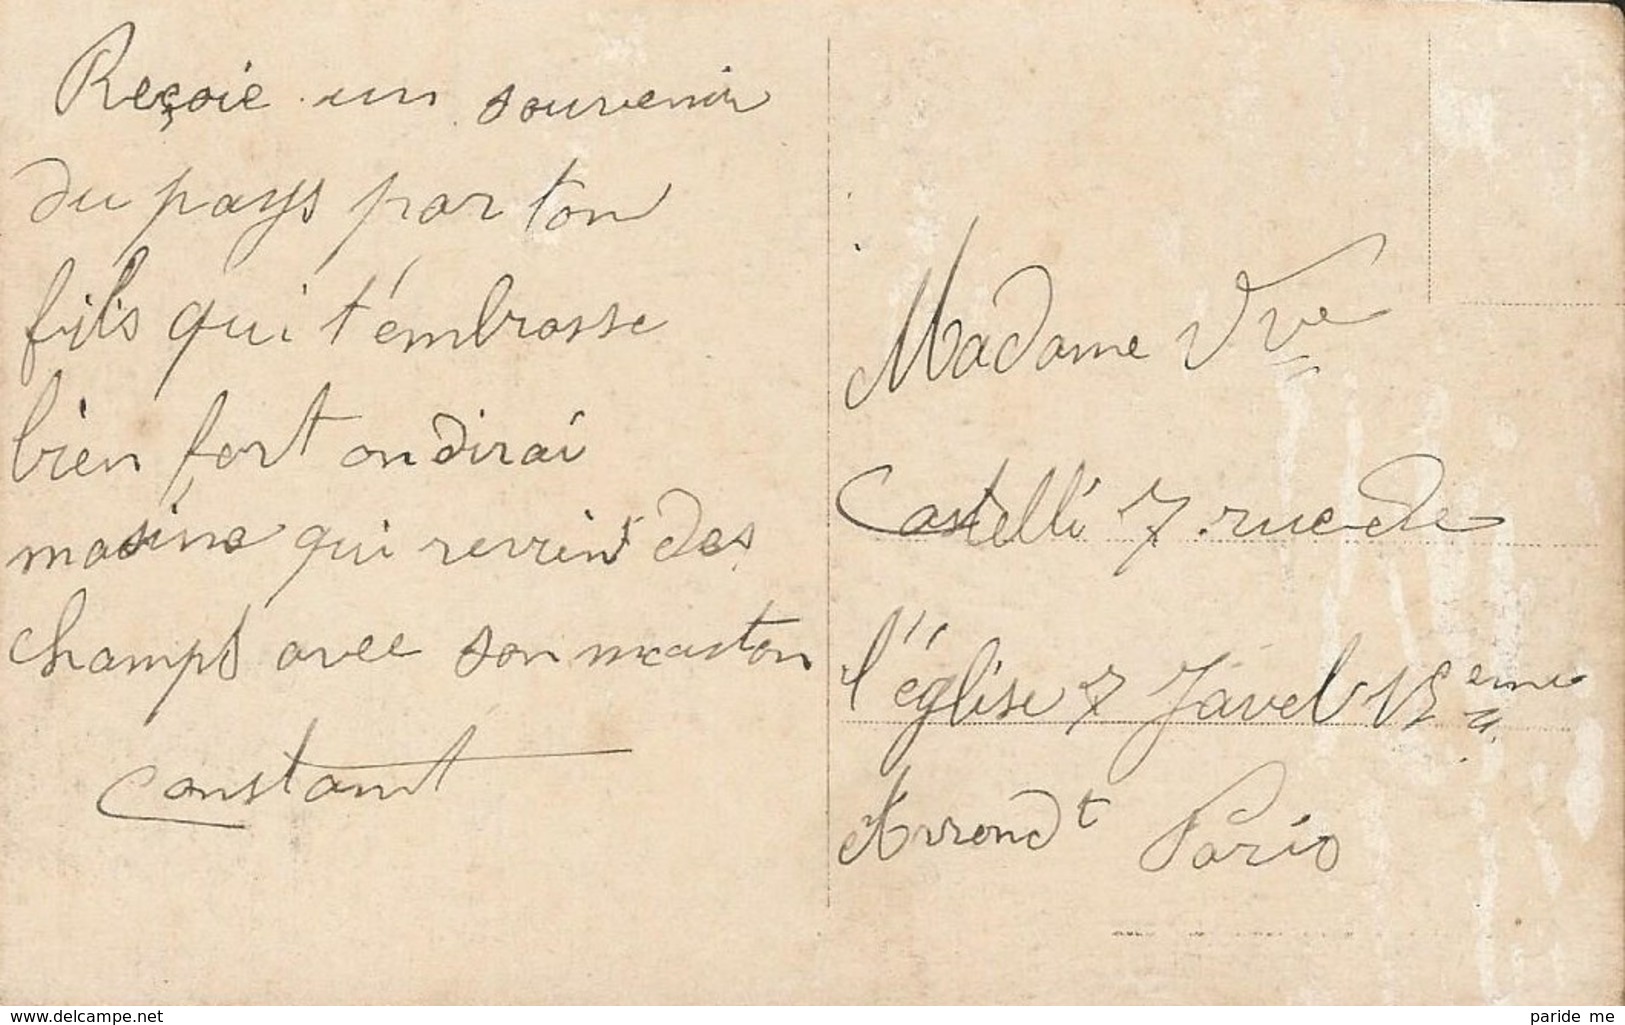 Reçoie un souvenir
du pays par ton
fils qui t'émbrasse
bien fort on dirai
qui revient des
champs avec son
Constant
Madame Vve
Castelli 7 rue de
l'église 7 Javel 15eme
Arrondt Paris
www.delcampe.net
paride me